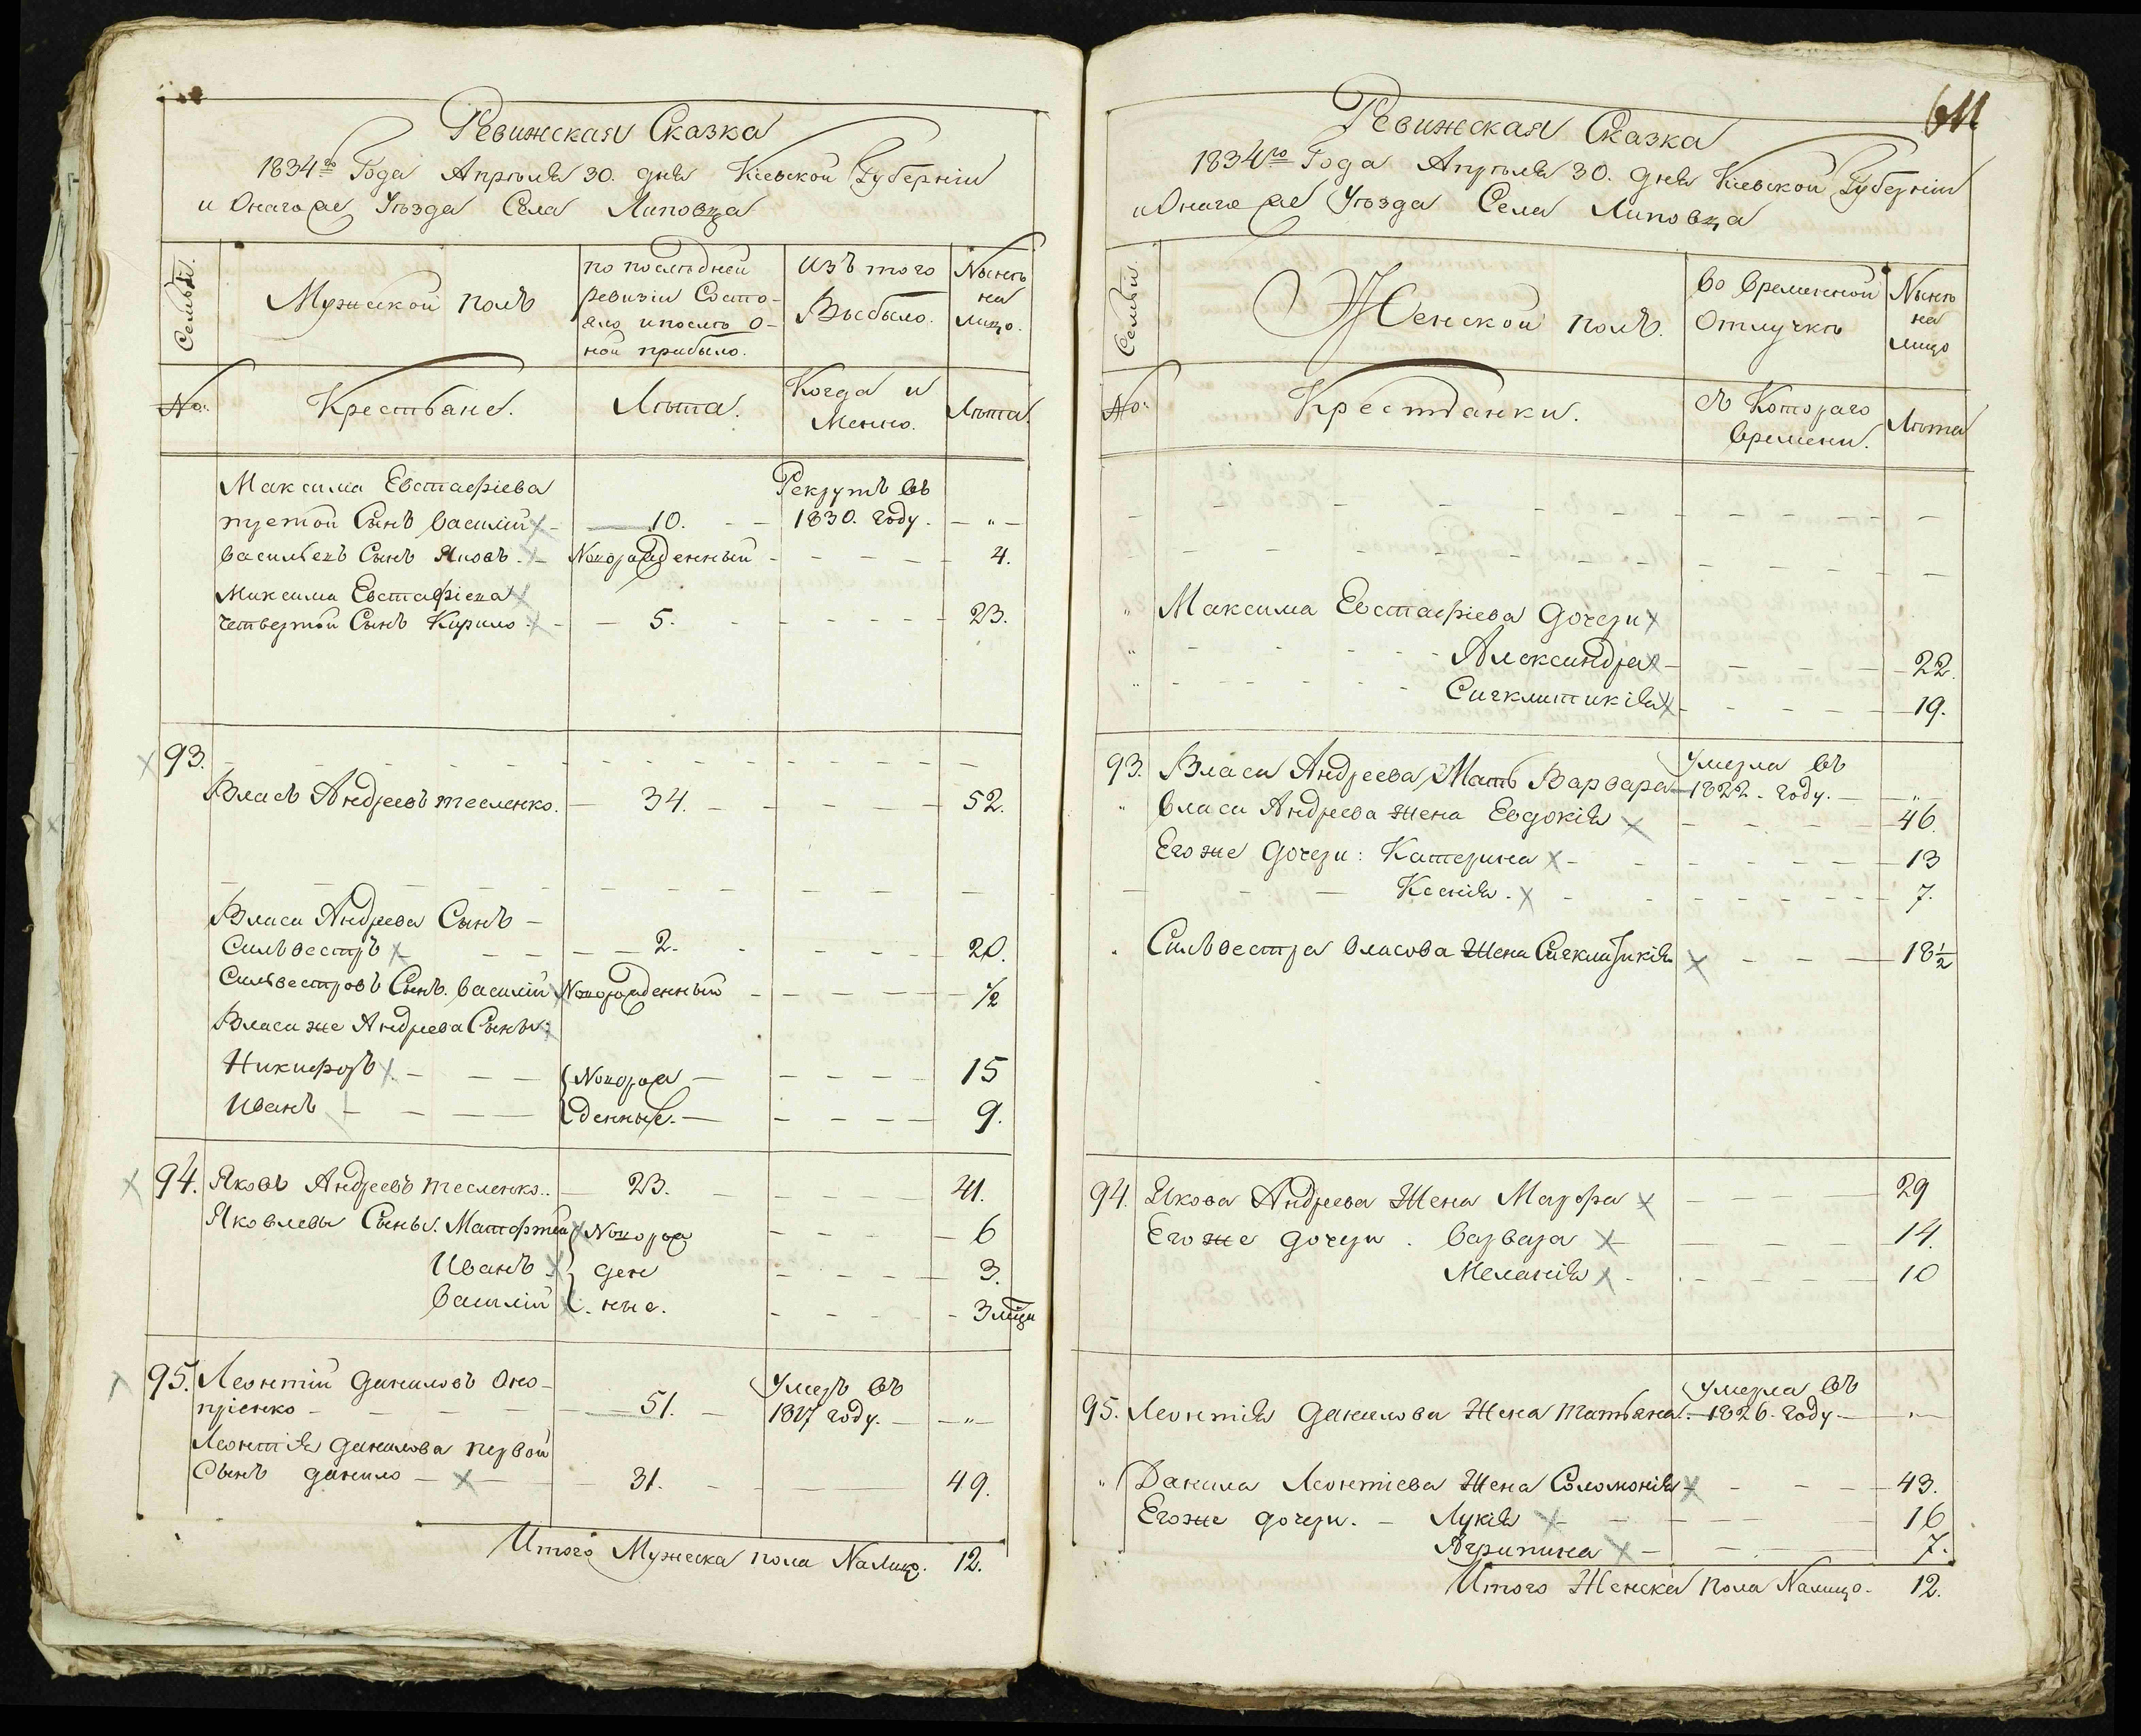 Ревижская Сказка
1834го Года Апрѣля 30. дня Кіевской Губерніи
и Онагоже Уѣзда Села Липовца
Семьи.
Мужеской полъ
по послѣдней
ревизіи Состо-
яло ипослѣ о-
ной прибыло.
Изъ того
Выбыло.
Нынѣ
на
лицо.
No.
Крестьяне.
Лѣта.
Когда и
Менно.
Лѣта.
Максима Евстафіева
Рекрутъ въ
третой Сынъ Василій 10. 1830. году. "
Васильевъ Сынъ Яковъ. Новорожденный 4.
Максима Евстафіева
четвертой Сынъ Кирило 5. 23.
93.
Власъ Андреевъ тесленко. 34. 52.
Власа Андреева Сынъ
Сильвестръ 2. 20.
Сильвестровъ Сынъ. Василій Новорожденный 1/2
Власа же Андреева Сыны:
Никифоръ Новорож 15
Иванъ денные. 9.
94. Яковъ Андреевъ тесленко.. 23. 41.
Яковлевы Сыны. Матфтей Новорож 6
Иванъ ден 3.
Василій ные. 3 мцы
95. Леонтій Даниловъ Оно- Умеръ въ
пріенко 51. 1827 году. "
Леонтія Данилова первой
Сынъ Данило 31. 49.
Итого Мужеска пола Налицо. 12.
611
Ревижская Сказка
1834го Года Апрѣля 30. дня Кіевской Губерніи
иОнаго же Уѣзда Села Липовца
Семьи.
Женской полъ.
Во временной
Отлучкѣ
Нынѣ
на
лицо
No.
Крестьянки.
Съ Котораго
времени.
Лѣта
" Максима Евстафіева дочери
" Александра 22.
" Сигклитикія 19.
Умерла въ
93. Власа Андреева Мать Варвара 1822. году. "
" Власа Андреева жена Евдокія 46.
Егоже дочери: Катерина 13
Ксенія. 7.
" Сильвестра Власова Жена Сигклитикія 18 1/2
94. Якова Андреева Жена Марфа 29
Егоже дочери. Варвара 14.
Меланія 10
Умерла въ
95. Леонтія Данилова Жена Татьяна. 1826. году "
" Данила Леонтіева Жена Соломонія 43.
Егоже дочери. Лукія 16
Агрипина 7.
Итого Женска пола Налицо. 12.